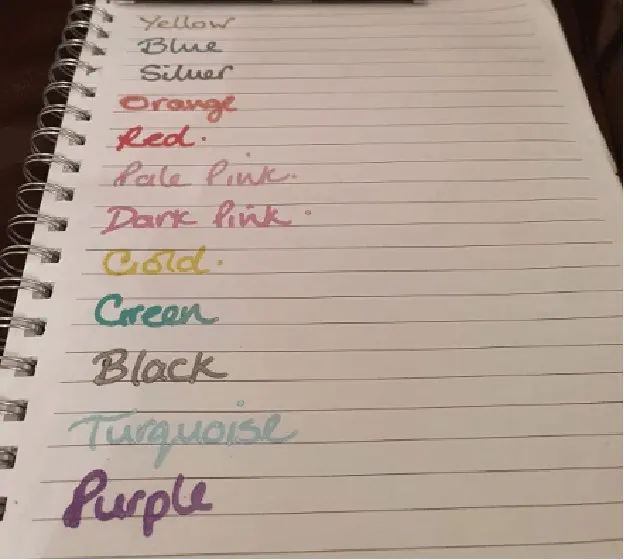 Yellow
Blue
Silver
Orange
Red.
Pale Pink.
Dark Pink.
Gold.
Green
Black
Turquoise
Purple